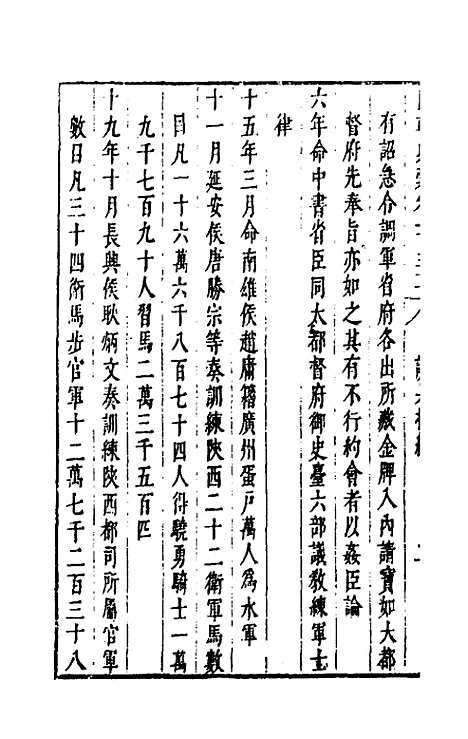 有詔急令調軍省府各出所藏金牌入內請寶如大都
督府先奉旨亦如之其有不行約會者以姦臣論
六年命中書省臣同大都督府御史臺六部議教練軍士
律
十五年三月命南雄侯趙庸籍廣州蛋戸萬人爲水軍
十一月延安侯唐勝宗等奏訓練陝西二十二衛軍馬數
目凡一十六萬六千八百七十四人得驍勇騎士一萬
九千七百九十人習馬二萬三千五百匹
十九年十月長興侯耿炳文奏訓練陝西都司所屬官軍
數目凡三十四衛馬步官軍十二萬七千二百三十八